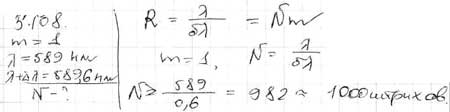 5.108.
m = 1
λ = 589 нм
λ+Δλ = 589,6 нм
N - ?
R = λ / δλ = Nm
m = 1, N = λ / δλ
N ≥ 589 / 0,6 = 982 ≈ 1000 штрихов.